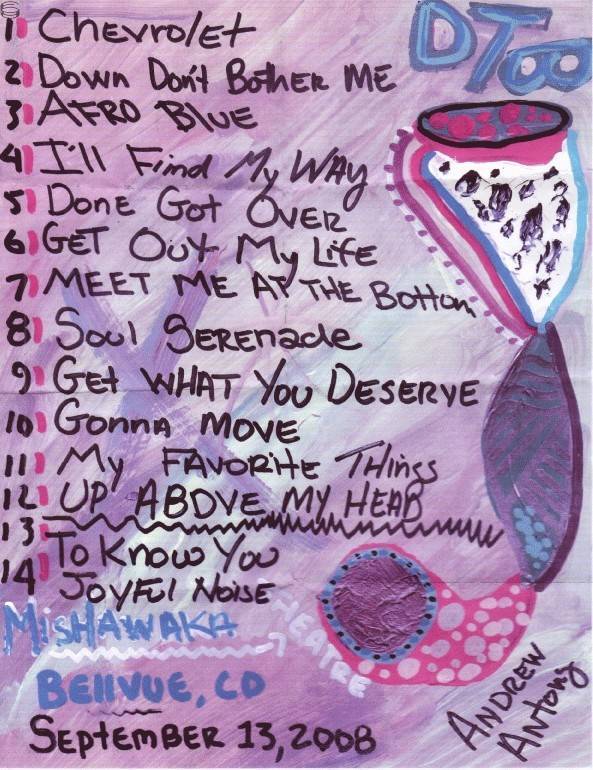 DToo
1) Chevrolet
2) Down Don't Bother ME
3) AFRO Blue
4) I'll Find My WAy
5) Done Got Over
6) GET Out My Life
7) MEET ME AT THE Bottom
8) Soul SERENade
9) Get WHAT You DESERVE
10) Gonna MOVE
11) My FAVORite THings
12) UP ABOVE MY HEAD
13) To Know You
14) JOYFUl NOISE
MiSHAWAKA
THEATRE
BEllVUE, CO
SEPtEMBER 13, 2008
ANDREW
ANtony